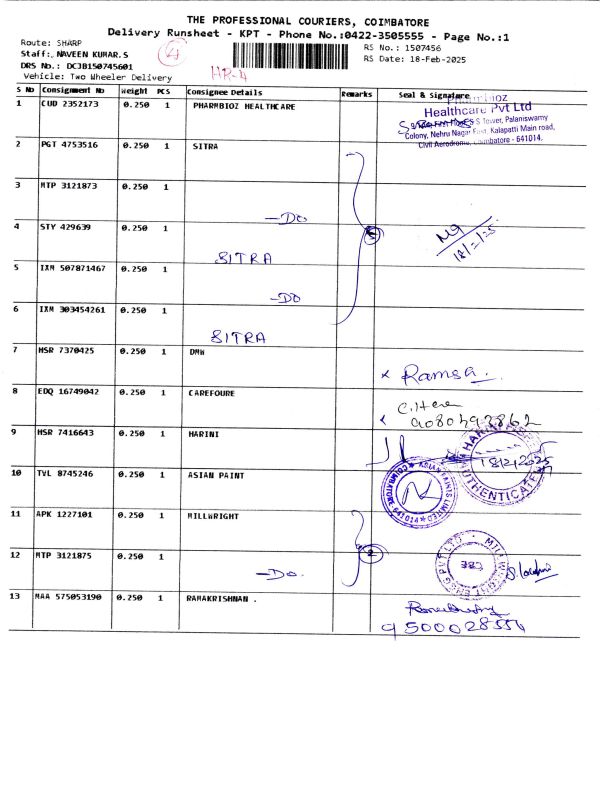 THE PROFESSIONAL COURIERS, COIMBATORE
Delivery Runsheet - KPT - Phone No.:0422-3505555 - Page No.:1
Route: SHARP
Staff:. NAVEEN KUMAR.S
DRS No.: DCJB150745601
Vehicle: Two Wheeler Delivery
4
HR-4
RS No.: 1507456
RS Date: 18-Feb-2025
S No Consignment No Weight PCS Consignee Details Remarks Seal & Signature
1 CUD 2352173 0.250 1 PHARMBIOZ HEALTHCARE
Healthcare Pvt Ltd
S Tower, Palaniswamy
Colony, Nehru Nagar East, Kalapatti Main road,
Civil Aerodrome, Coimbatore - 641014.
2 PGT 4753516 0.250 1 SITRA
3 MTP 3121873 0.250 1
-DO
4 STY 429639 0.250 1
SITRA
5
18/2/25
5 IXM 507871467 0.250 1
-DO
6 IXM 303454261 0.250 1
SITRA
7 HSR 7370425 0.250 1 DMW
Ramsa
8 EDQ 16749042 0.250 1 CAREFOURE
9 HSR 7416643 0.250 1 HARINI
18/2/2025
AUTHENTICATE
10 TVL 8745246 0.250 1 ASIAN PAINT
ASIAN PAINTS LIMITED
COIMBATORE 641014
11 APK 1227101 0.250 1 MILLWRIGHT
2
12 MTP 3121875 0.250 1
-DO.
383
13 MAA 575053190 0.250 1 RAMAKRISHNAN .